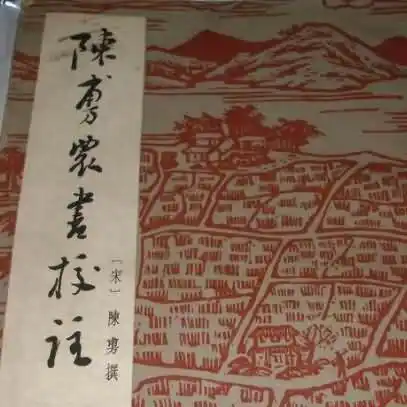 陳旉農書校注
〔宋〕陳旉撰